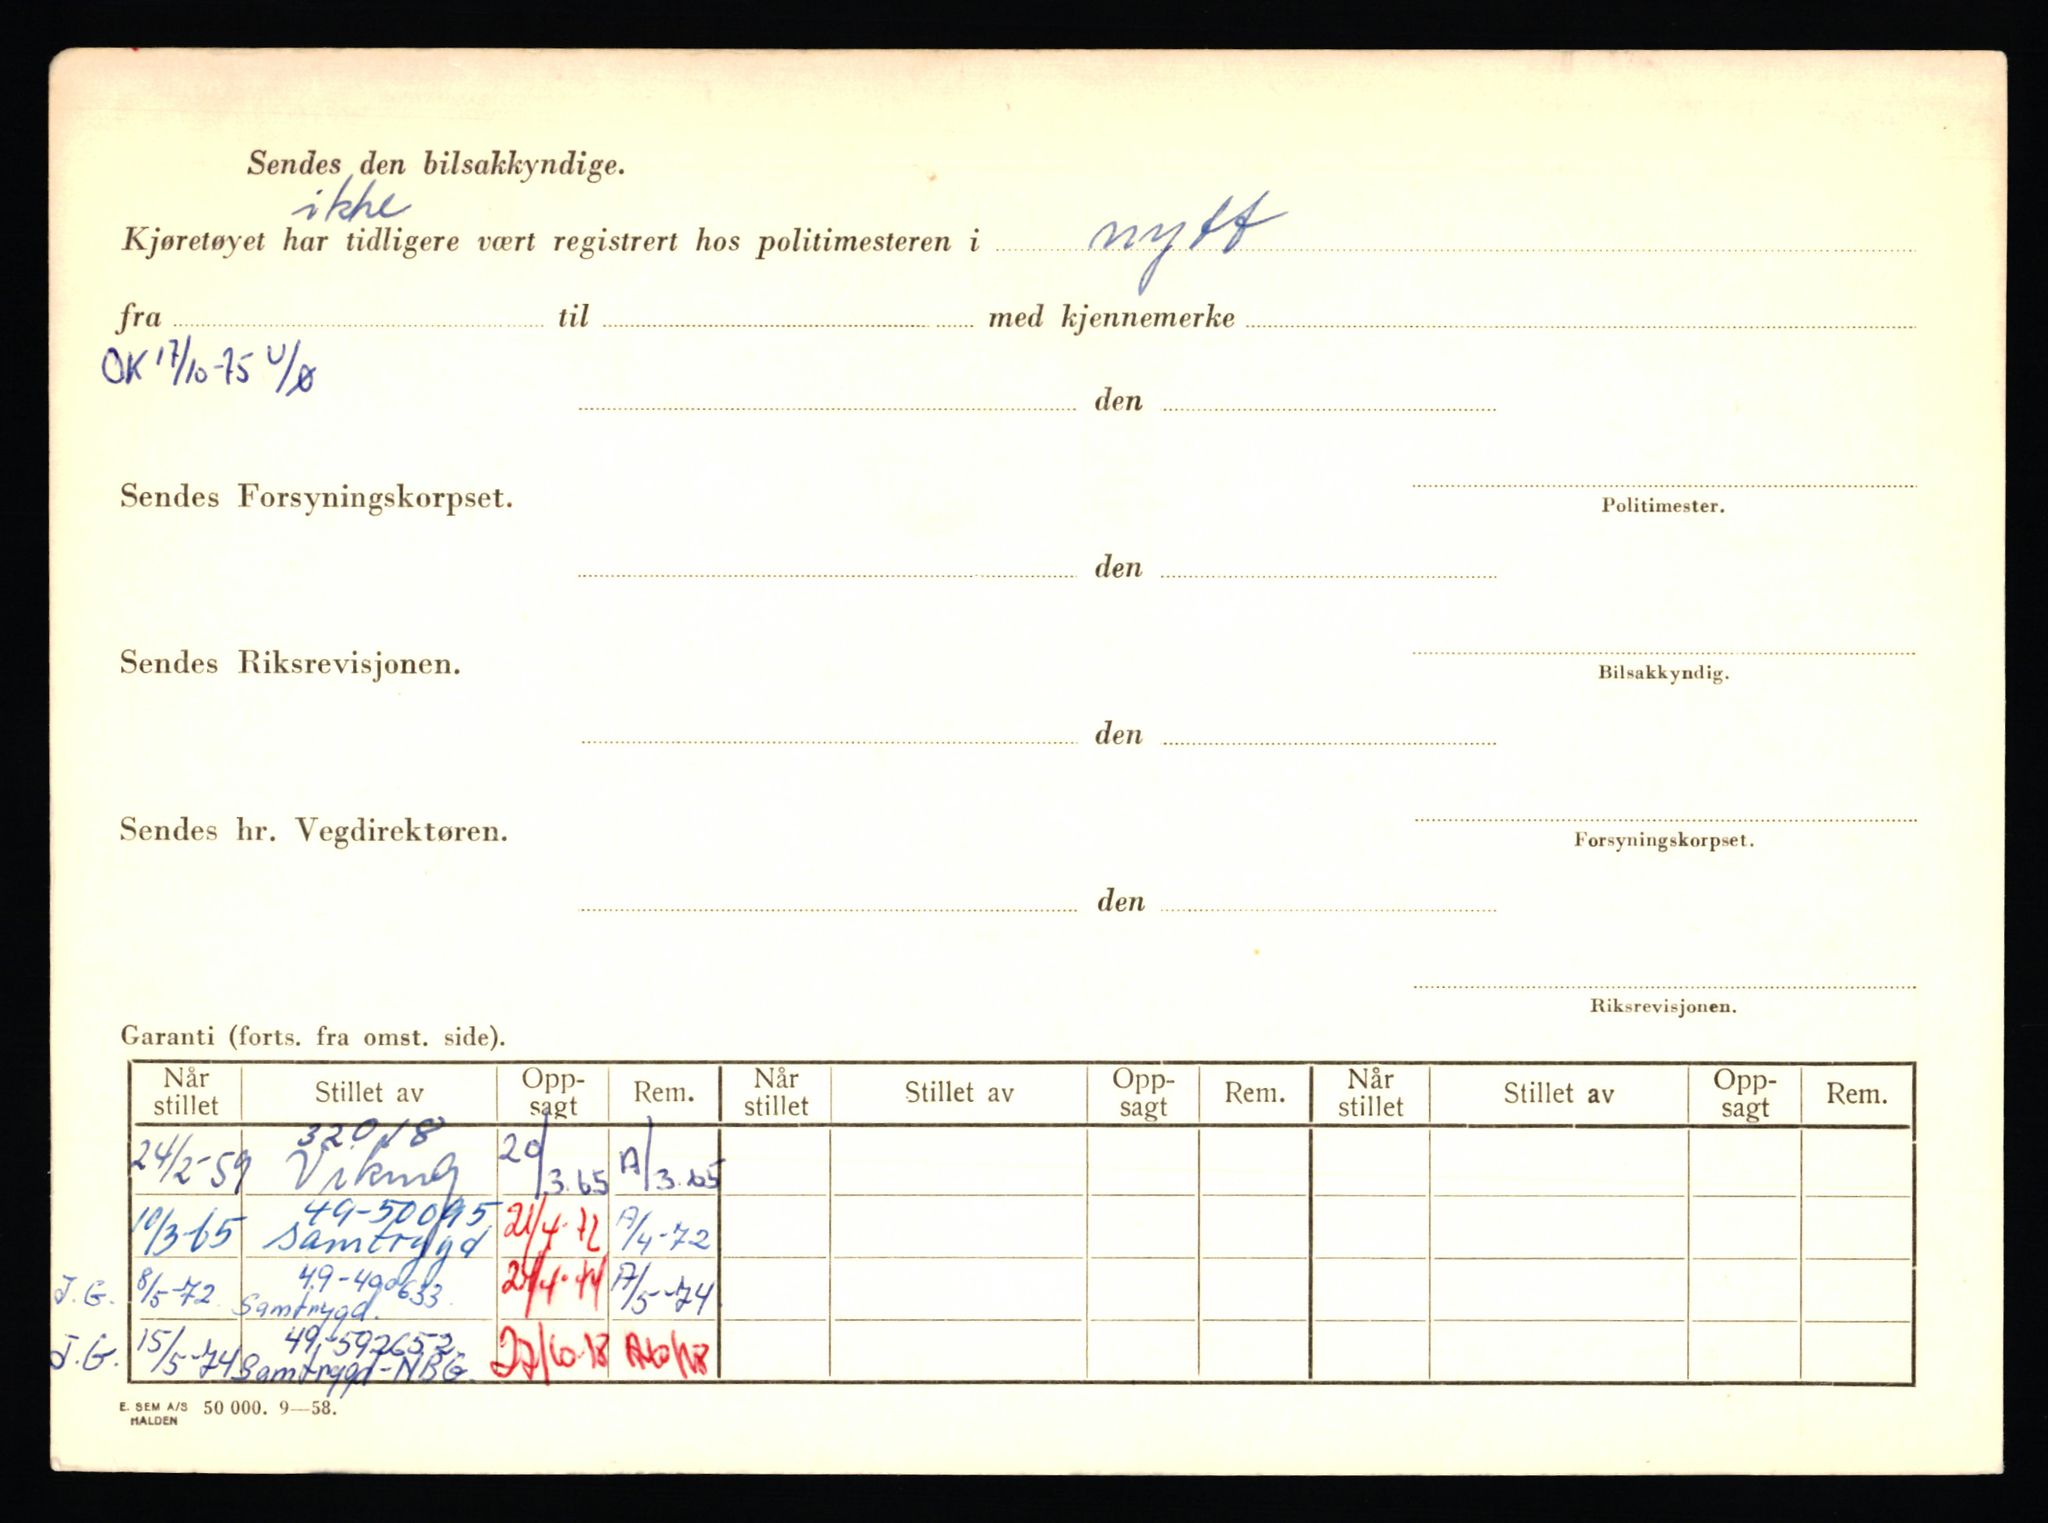 Sendes den bilsakkyndige.
ikke
Kjøretøyet har tidligere vært registrert hos politimesteren i nytt
fra til med kjennemerke
OK 17/10-75 U/Ø
den
Sendes Forsyningskorpset.
Politimester.
den
Sendes Riksrevisjonen.
Bilsakkyndig.
den
Sendes hr. Vegdirektøren.
Forsyningskorpset.
den
Riksrevisjonen.
Garanti (forts. fra omst. side).
Når stillet Stillet av Opp-sagt Rem. Når stillet Stillet av Opp-sagt Rem. Når stillet Stillet av Opp-sagt Rem.
32018
24/2-59 Viking 20/3.65 A/3.65
49-50095
10/3-65 Samtrygd 21/4-72 A/4-72
49-490633
J.G. 8/5-72 Samtrygd. A/5-74
49-592652
J.G. 15/5-74 Samtrygd-NBG.
E. SEM A/S 50 000. 9—58.
HALDEN